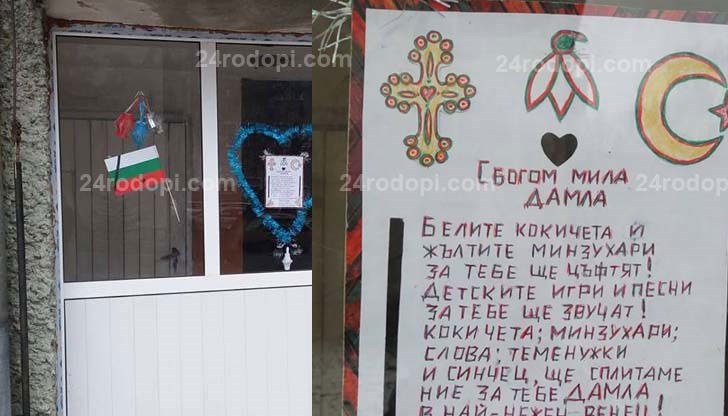 24rodopi.com
24rodopi.com
24rodopi.com
24rodopi.com
24rodopi.com
24rodopi.com
Сбогом мила
Дамла
Белите кокичета и
жълтите минзухари
за тебе ще цъфтят!
Детските игри и песни
за тебе ще звучат!
Кокичета; минзухари;
слова; теменужки
и синчец, ще сплитаме
ние за тебе Дамла
в най-нежен венец!